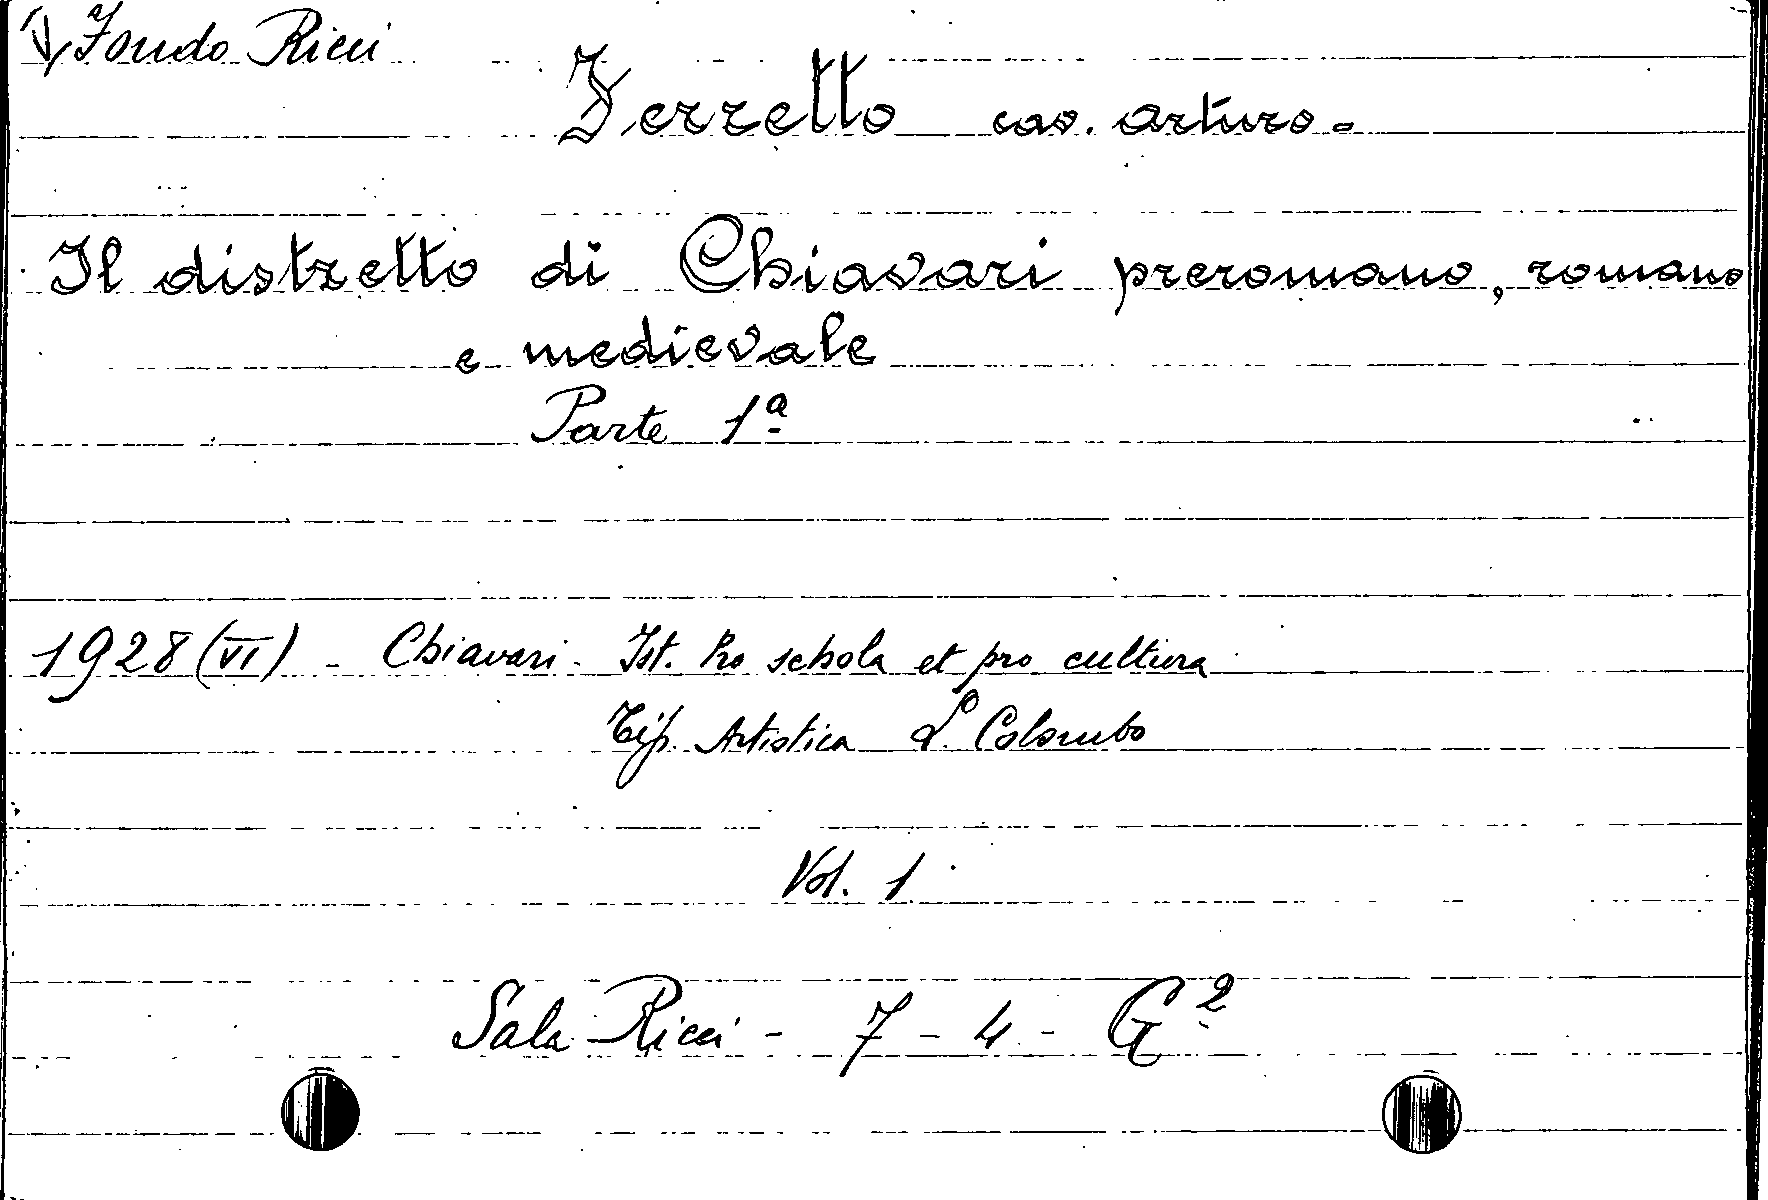 Fondo Ricci
Ferretto cav. Arturo -
Il distretto di Chiavari preromano, romano
e medievale
Parte 1ª
1928 (VI) - Chiavari - Ist. Pro schola et pro cultura
Tip. Artistica L. Colombo
Vol. 1
Sala Ricci - 7 - 4 - G²